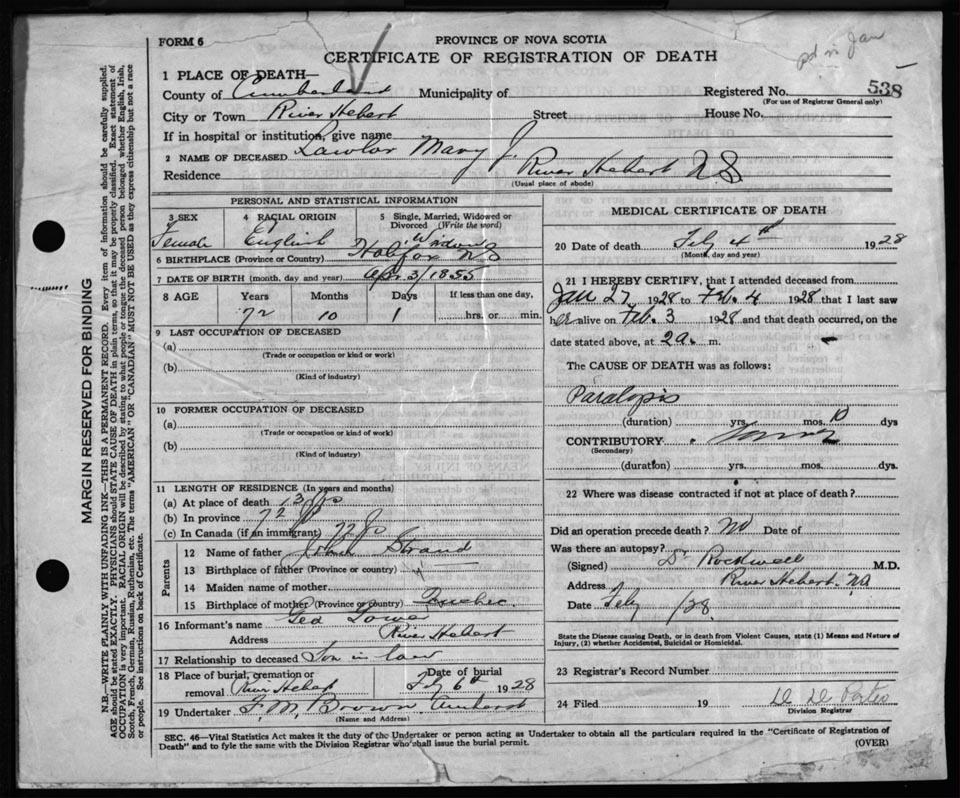 pd in Jan
FORM 6
PROVINCE OF NOVA SCOTIA
CERTIFICATE OF REGISTRATION OF DEATH
1 PLACE OF DEATH—
County of Cumberland Municipality of Registered No. 538
(For use of Registrar General only)
City or Town River Hebert Street House No.
If in hospital or institution, give name
2 NAME OF DECEASED Lawlor Mary J.
Residence River Hebert N.S
(Usual place of abode)
PERSONAL AND STATISTICAL INFORMATION
3 SEX Female
4 RACIAL ORIGIN English
5 Single, Married, Widowed or Divorced (Write the word) Widow
6 BIRTHPLACE (Province or Country) Halifax NS
7 DATE OF BIRTH (month, day and year) Apr. 3/1855
8 AGE Years Months Days If less than one day,
72 10 1 hrs. or min.
9 LAST OCCUPATION OF DECEASED
(a)
(Trade or occupation or kind or work)
(b)
(Kind of industry)
10 FORMER OCCUPATION OF DECEASED
(a)
(Trade or occupation or kind of work)
(b)
(Kind of industry)
11 LENGTH OF RESIDENCE (In years and months)
(a) At place of death 13 yrs
(b) In province 72
(c) In Canada (if an immigrant) 72 yrs
Parents
12 Name of father Strand
13 Birthplace of father (Province or country)
14 Maiden name of mother
15 Birthplace of mother (Province or country) Quebec.
16 Informant's name Geo Tower
Address River Hebert
17 Relationship to deceased Son in law
18 Place of burial, cremation or removal River Hebert
Date of burial Feby 6th 1928
19 Undertaker F. M. Brown Amherst
(Name and Address)
MEDICAL CERTIFICATE OF DEATH
20 Date of death Feby 4th 1928
(Month, day and year)
21 I HEREBY CERTIFY, that I attended deceased from
Jan 27 1928 to Feb. 4 1928 that I last saw
her alive on Feb. 3 1928 and that death occurred, on the
date stated above, at 2 a. m.
The CAUSE OF DEATH was as follows:
Paralysis
(duration) yrs. mos. 10 dys
CONTRIBUTORY
(Secondary)
(duration) yrs. mos. dys.
22 Where was disease contracted if not at place of death?
Did an operation precede death? No Date of
Was there an autopsy?
(Signed) Dr Rockwell M.D.
Address River Hebert. NS
Date Feby /28
State the Disease causing Death, or in death from Violent Causes, state (1) Means and Nature of Injury, (2) whether Accidental, Suicidal or Homicidal.
23 Registrar's Record Number
24 Filed 19
Division Registrar
SEC. 46—Vital Statistics Act makes it the duty of the Undertaker or person acting as Undertaker to obtain all the particulars required in the "Certificate of Registration of
Death" and to fyle the same with the Division Registrar who shall issue the burial permit. (OVER)
MARGIN RESERVED FOR BINDING
N.B.—WRITE PLAINLY WITH UNFADING INK—THIS IS A PERMANENT RECORD. Every item of information should be carefully supplied.
AGE should be stated EXACTLY. PHYSICIANS should STATE CAUSE OF DEATH in plain terms, so that it may be properly classified. Exact statement of
OCCUPATION is very important. RACIAL ORIGIN will be described by stating to what people or tongue the deceased person belonged whether English, Irish,
Scotch, French, German, Russian, Ruthenian, etc. The terms "AMERICAN" OR "CANADIAN" MUST NOT BE USED as they express citizenship but not a race
or people. See instructions on back of Certificate.